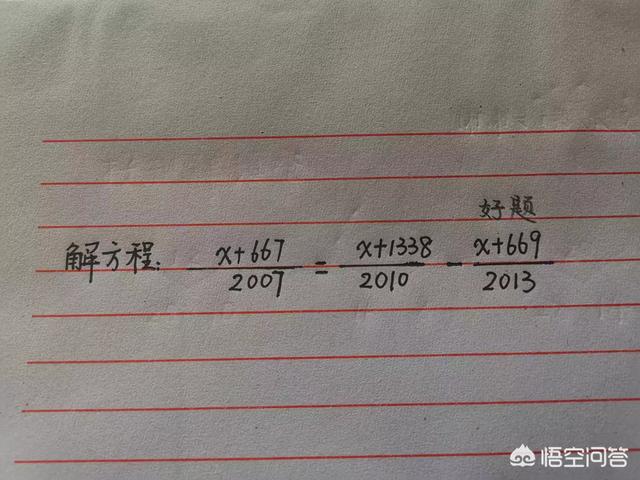 好题
解方程: x+667/2007 = x+1338/2010 - x+669/2013
悟空问答